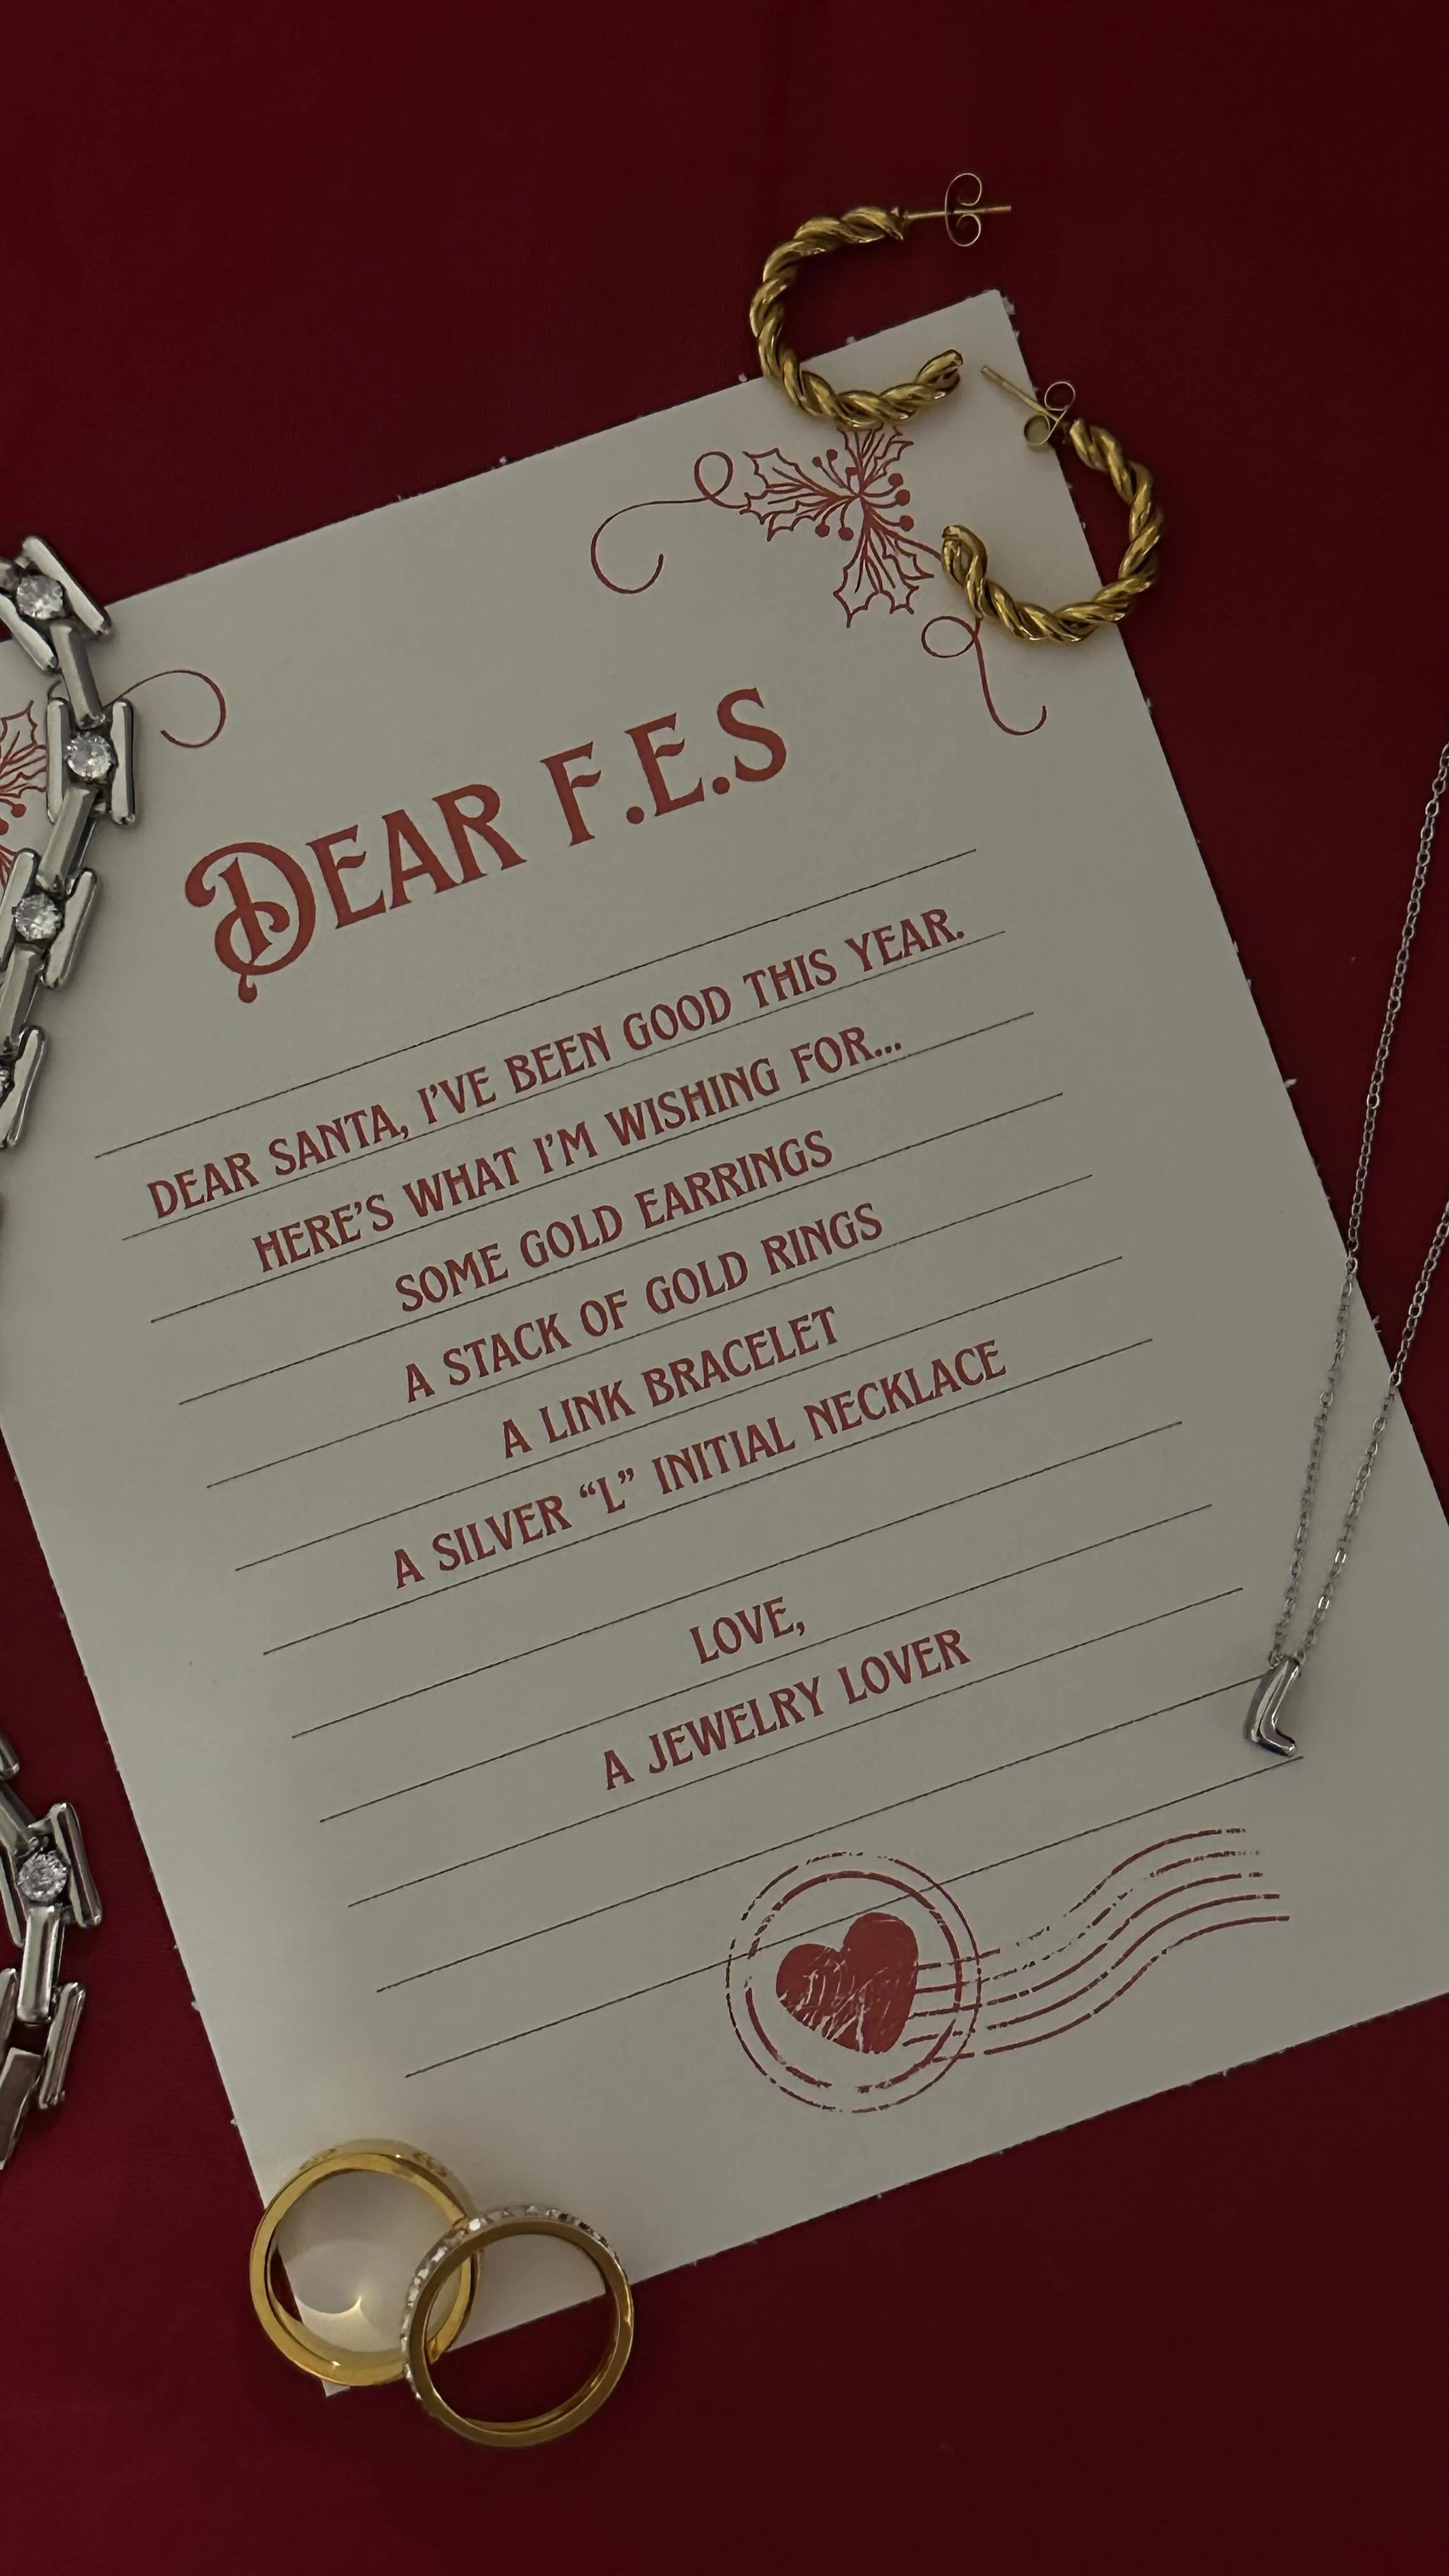 DEAR F.E.S
DEAR SANTA, I'VE BEEN GOOD THIS YEAR.
HERE'S WHAT I'M WISHING FOR...
SOME GOLD EARRINGS
A STACK OF GOLD RINGS
A LINK BRACELET
A SILVER “L” INITIAL NECKLACE
LOVE,
A JEWELRY LOVER
L